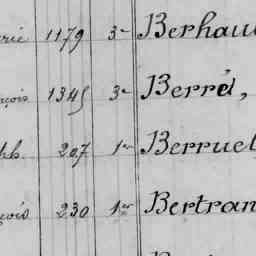 erie 1179 3e Berhau
nçois 1345 3e Berré,
ph. 207 1er Berruel
nçois 230 1er Bertran